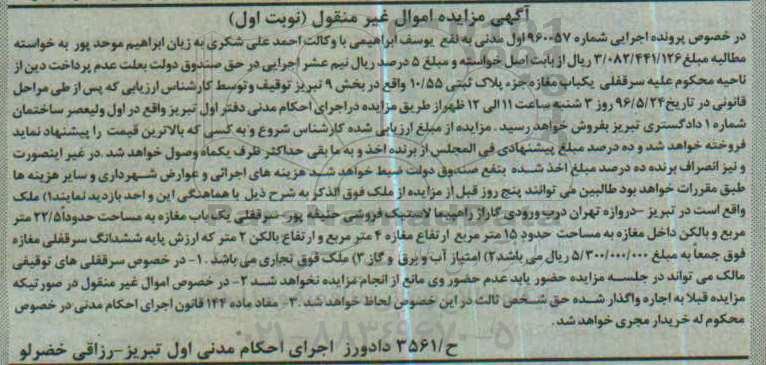 آگهی مزایده اموال غیر منقول (نوبت اول)
در خصوص پرونده اجرایی شماره ۹۶۰۰۵۷ اول مدنی به نفع یوسف ابراهیمی با وکالت احمد علی شکری به زیان ابراهیم موحد پور به خواسته
مطالبه مبلغ ۳/۰۸۲/۴۴۱/۱۲۶ ریال از بابت اصل خواسته و مبلغ ۵ درصد ریال نیم عشر اجرایی در حق صندوق دولت بعلت عدم پرداخت دین از
ناحیه محکوم علیه سرقفلی یکباب مغازه جزء پلاک ثبتی ۱۰/۵۵ واقع در بخش ۹ تبریز توقیف و توسط کارشناس ارزیابی که پس از طی مراحل
قانونی در تاریخ ۹۶/۵/۲۴ روز ۳ شنبه ساعت ۱۱ الی ۱۲ ظهر از طریق مزایده در اجرای احکام مدنی دفتر اول تبریز واقع در اول ولیعصر ساختمان
شماره ۱ دادگستری تبریز بفروش خواهد رسید . مزایده از مبلغ ارزیابی شده کارشناس شروع و به کسی که بالاترین قیمت را پیشنهاد نماید
فروخته خواهد شد و ده درصد مبلغ پیشنهادی فی المجلس از برنده اخذ و به ما بقی حداکثر ظرف یکماه وصول خواهد شد .در غیر اینصورت
و نیز انصراف برنده ده درصد مبلغ اخذ شده بنفع صندوق دولت ضبط خواهد شد هزینه های اجرائی و عوارض شهرداری و سایر هزینه ها
طبق مقررات خواهد بود طالبین می توانند پنج روز قبل از مزایده از ملک فوق الذکر به شرح ذیل با هماهنگی این واحد بازدید نمایند۱) ملک
واقع است در تبریز -دروازه تهران درب ورودی گاراژ راهپیما لاستیک فروشی حنیفه پور-سرقفلی یک باب مغازه به مساحت حدودا۲۲/۵ متر
مربع و بالکن داخل مغازه به مساحت حدود ۱۵ متر مربع ارتفاع مغازه ۴ متر مربع و ارتفاع بالکن ۲ متر که ارزش پایه ششدانگ سرقفلی مغازه
فوق جمعاً به مبلغ ۵/۳۰۰/۰۰۰/۰۰۰ ریال می باشد۲) امتیاز آب و برق و گاز ۳) ملک فوق تجاری می باشد . ۱- در خصوص سرقفلی های توقیفی
مالک می تواند در جلسه مزایده حضور یابد عدم حضور وی مانع از انجام مزایده نخواهد شد ۲- در خصوص اموال غیر منقول در صورتیکه
مزایده قبلا به اجاره واگذار شده حق شخص ثالث در این خصوص لحاظ خواهد شد .۳- مفاد ماده ۱۴۴ قانون اجرای احکام مدنی در خصوص
محکوم له خریدار مجری خواهد شد .
ح/۳۵۶۱ دادورز اجرای احکام مدنی اول تبریز-رزاقی خضرلو
۰۲۱-۸۸۳۴۹۶۷۰-۵